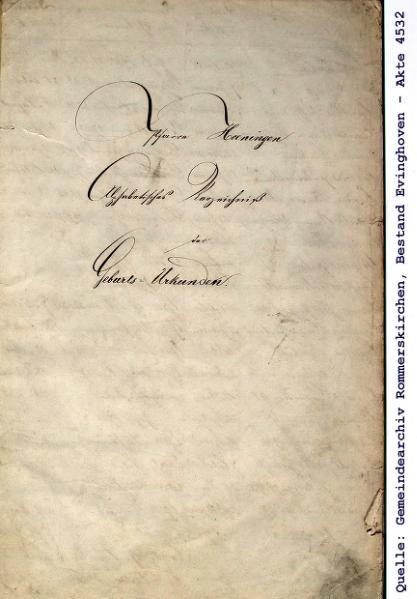 Pfarre Hoeningen
Alphabetisches Verzeichniß
der
Geburts-Urkunden.
Quelle: Gemeindearchiv Rommerskirchen, Bestand Evinghoven - Akte 4532